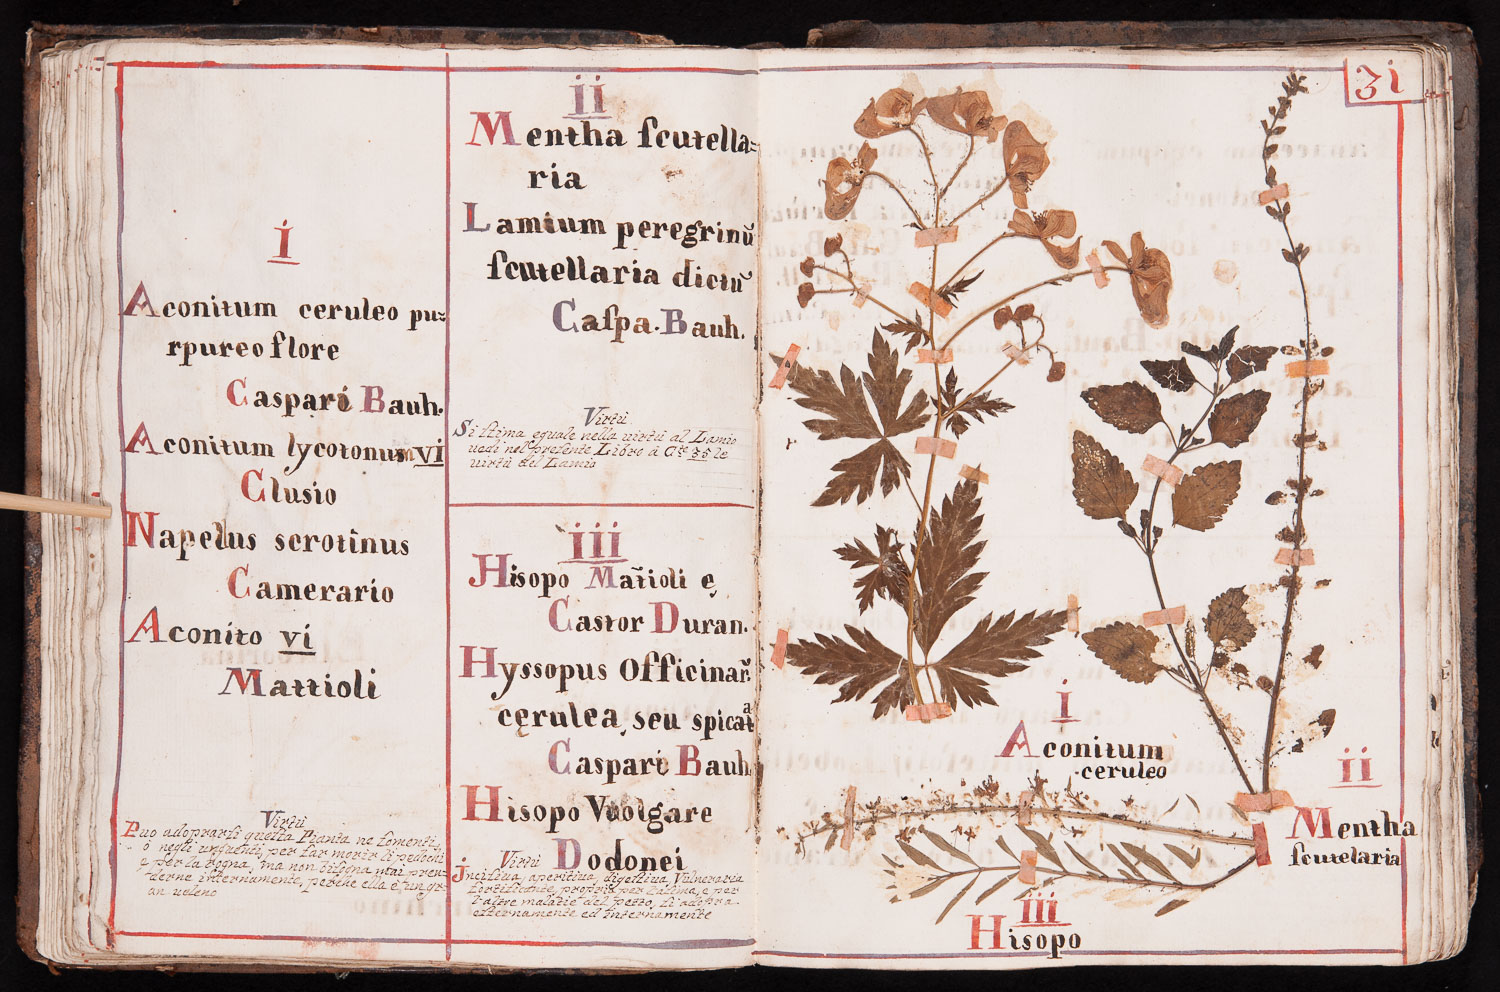 i
Aconitum ceruleo pu=
rpureo flore
Caspari Bauh.
Aconitum lycotonum vi
Clusio
Napelus serotinus
Camerario
Aconito vi
Mattioli
Virtù
Puo adoprarsi questa Pianta ne fomenti,
ò negli unguenti per far morir li pedochi
e per la rogna, ma non bisogna mai pren
derne internamente, perche ella è un gr
an veleno
ii
Mentha scutella=
ria
Lamium peregrinū
scutellaria dictū
Caspa. Bauh.
Virtù
Si stima eguale nella virtù al Lamio
vedi nel presente Libro à Cte 35 le
virtù del Lamio
iii
Hisopo Matioli e
Castor Duran.
Hyssopus Officinar.
cerulea, seu spicat a
Caspari Bauh.
Hisopo Vuolgare
Dodonei
Virtù
Incisiva, aperitiva, digestiva, Vulneraria
fortificante, propria per l'asima, e per
l'altre malatie del petto, si adopra
esternamente ed internamente
3i
i
Aconitum
ceruleo
ii
Mentha
scutelaria
iii
Hisopo